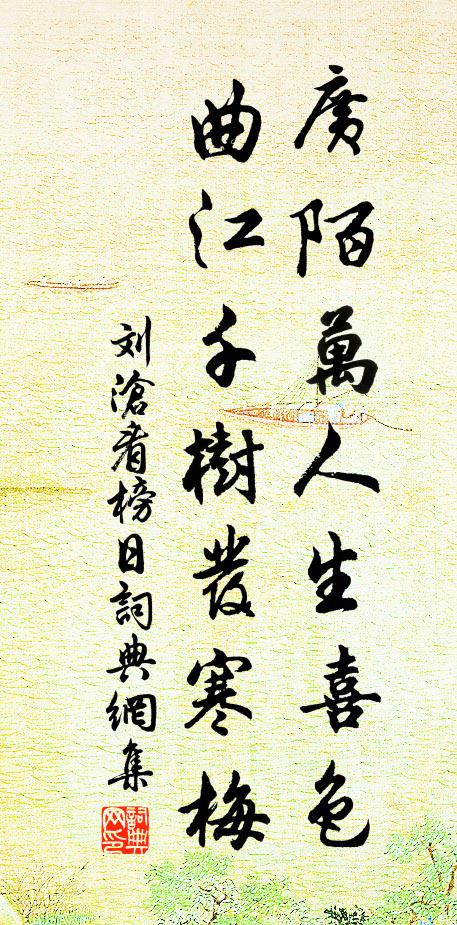 廣陌萬人生喜色
曲江千樹發寒梅
刘滄看榜日詞典網集
詞典網印